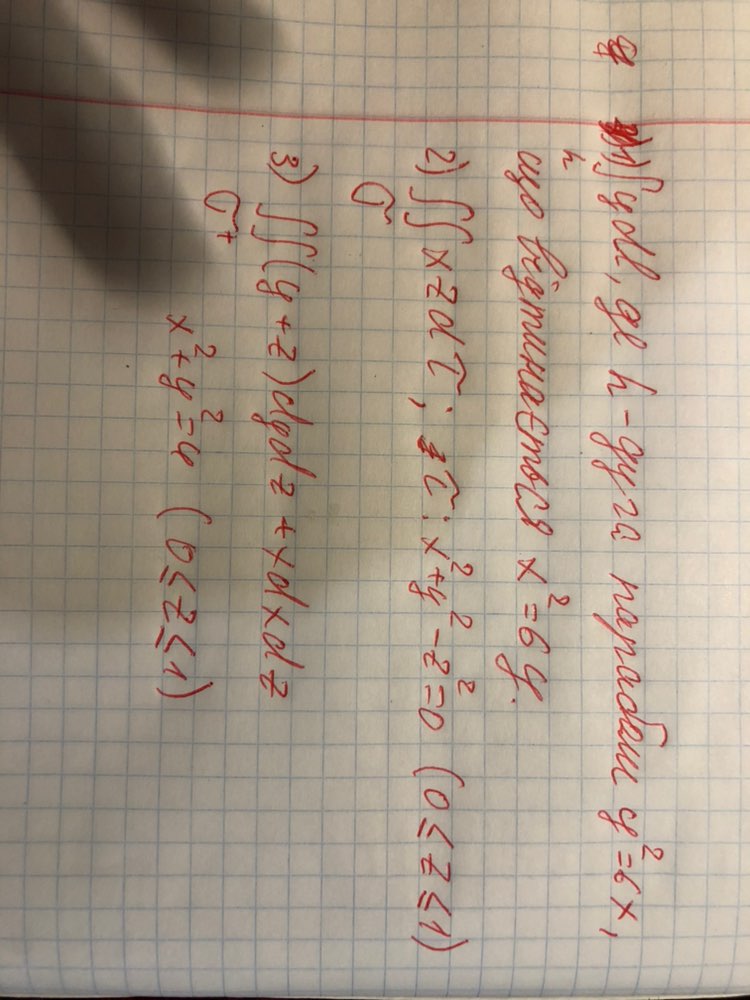 1) ∫ y dl, де h - дуга параболи y² = 6x,
h
що відтинається x² = 6y.
2) ∫∫ x z dτ; τ: x² + y² - z² = 0 (0 ≤ z ≤ 1)
σ
3) ∫∫ (y + z) dy dz + x dx dz
σ+
x² + y² = 4 (0 ≤ z ≤ 1)